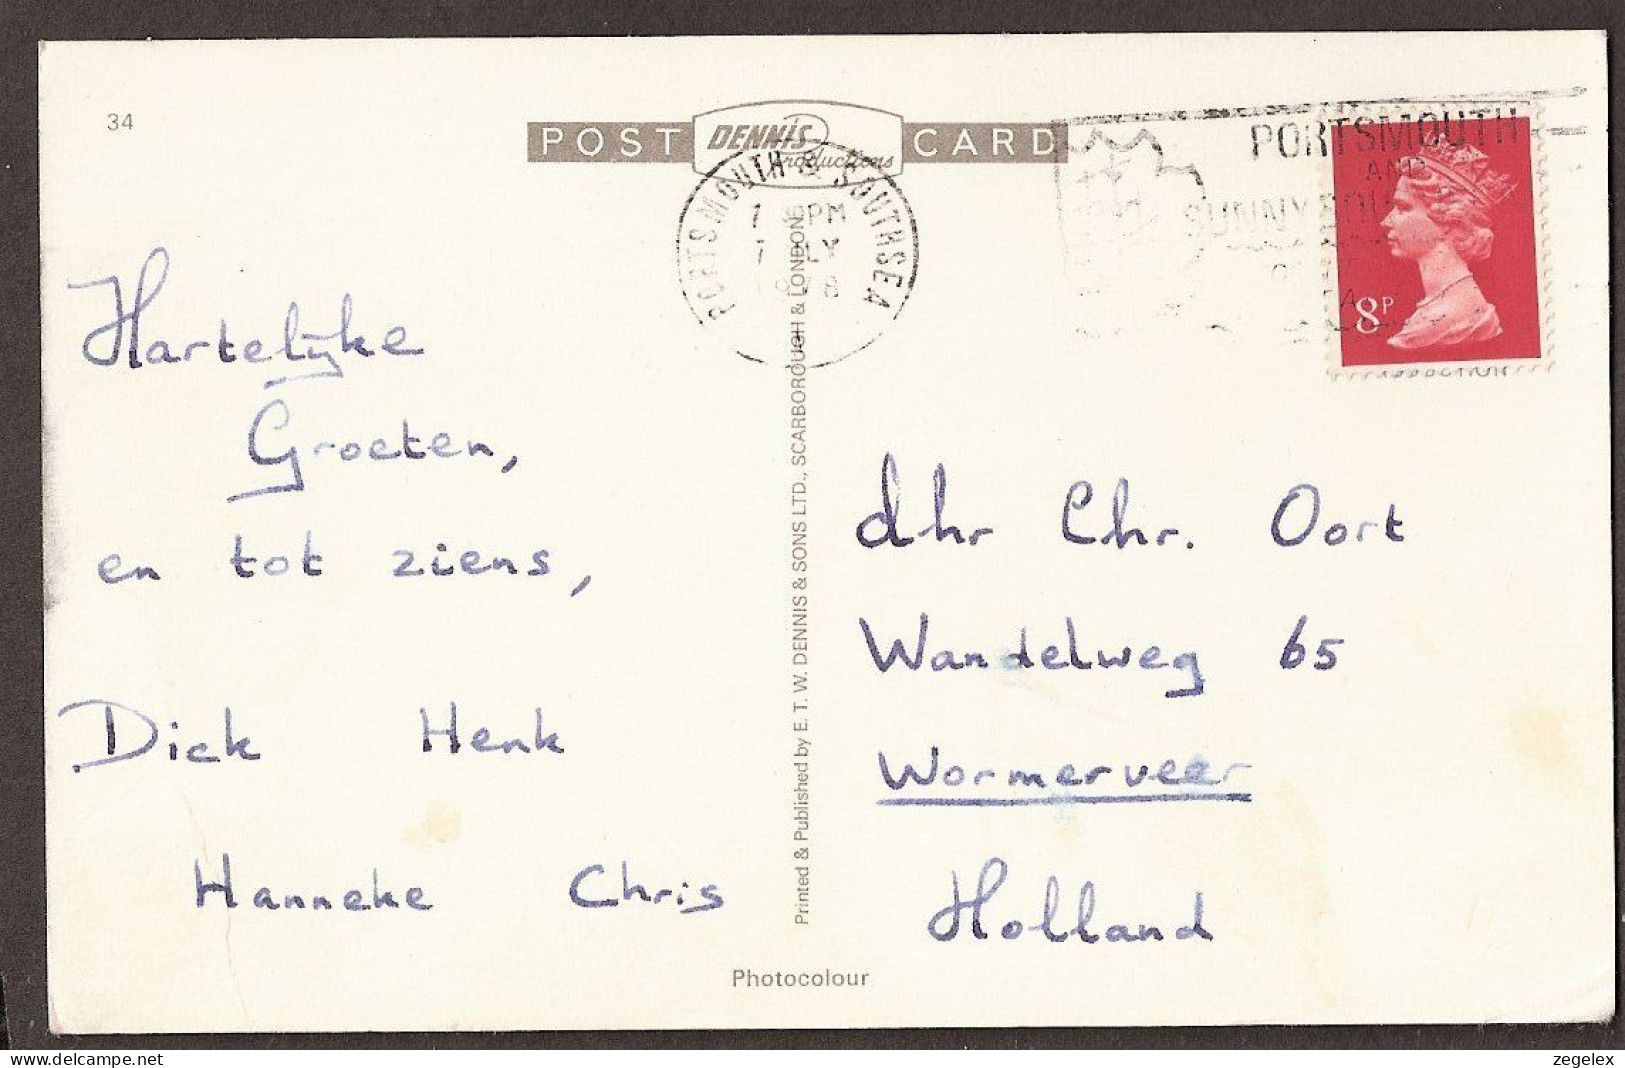 34
POST DENNIS Productions CARD
PORTSMOUTH & SOUTHSEA
PM
PORTSMOUTH
AND
SUNNY
8P
Hartelijke
Groeten,
en tot ziens,
Dick Henk
Hanneke Chris
Printed & Published by E. T. W. DENNIS & SONS LTD., SCARBOROUGH & LONDON
dhr Chr. Oort
Wandelweg 65
Wormerveer
Holland
Photocolour
www.delcampe.net
zegelex